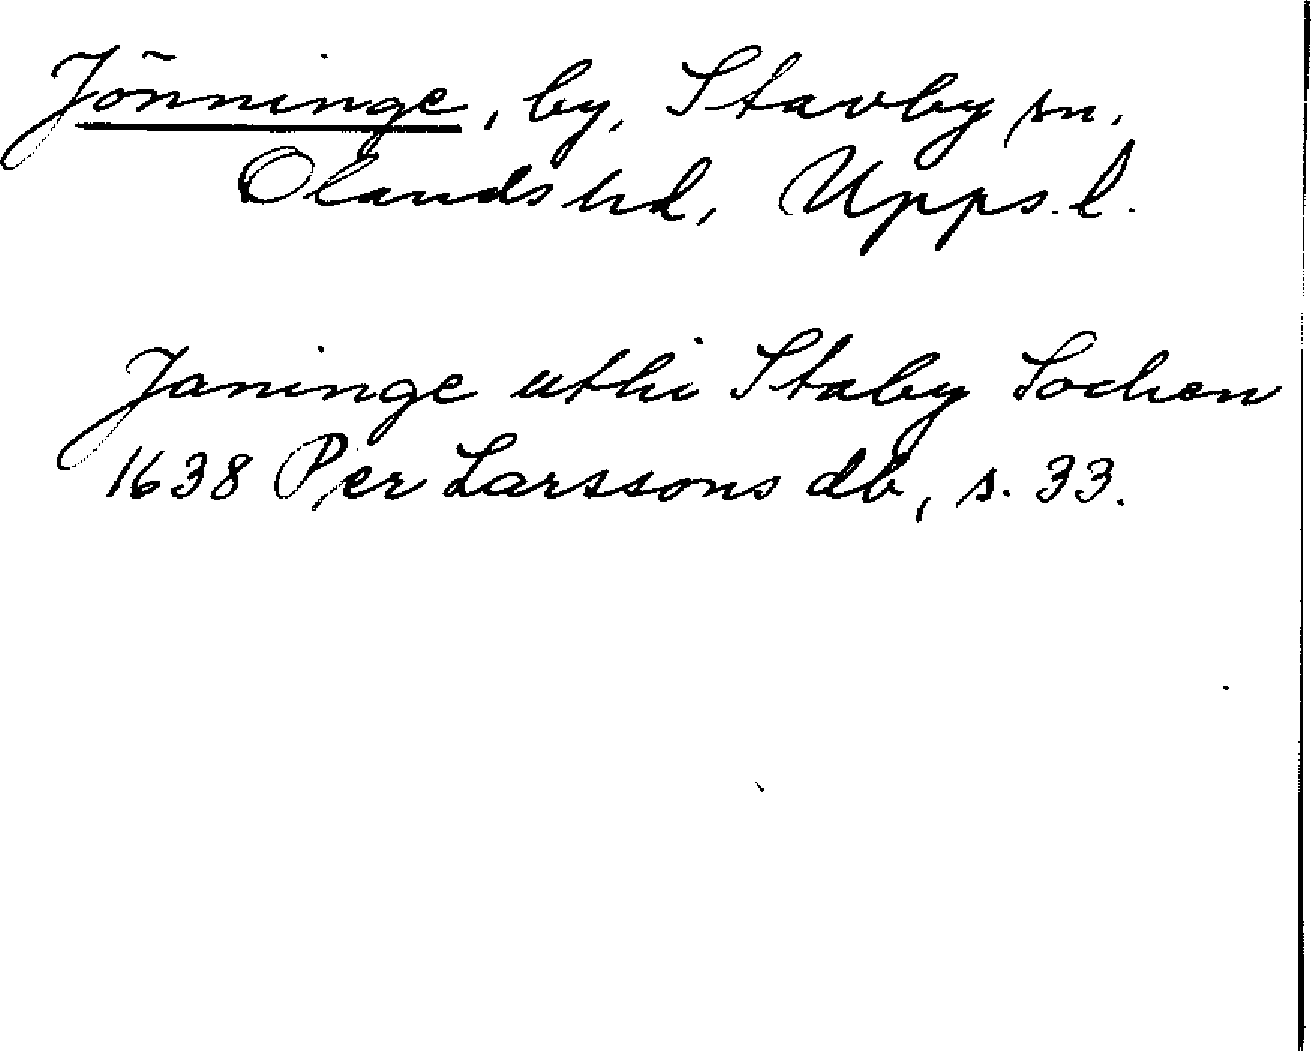 Jönninge, by, Stavby sn.
Olands hd, Upps. l.
Janinge uthi Staby Sochen
1638 Per Larssons db, s. 33.